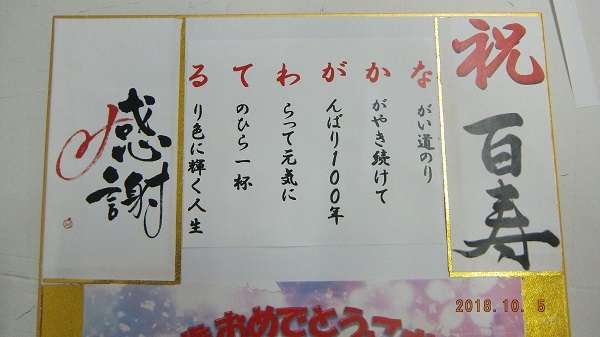 祝 百寿
ながい道のり
かがやき続けて
がんばり100年
わらって元気に
てのひら一杯
るり色に輝く人生
感謝
おめでとう
2018.10. 5